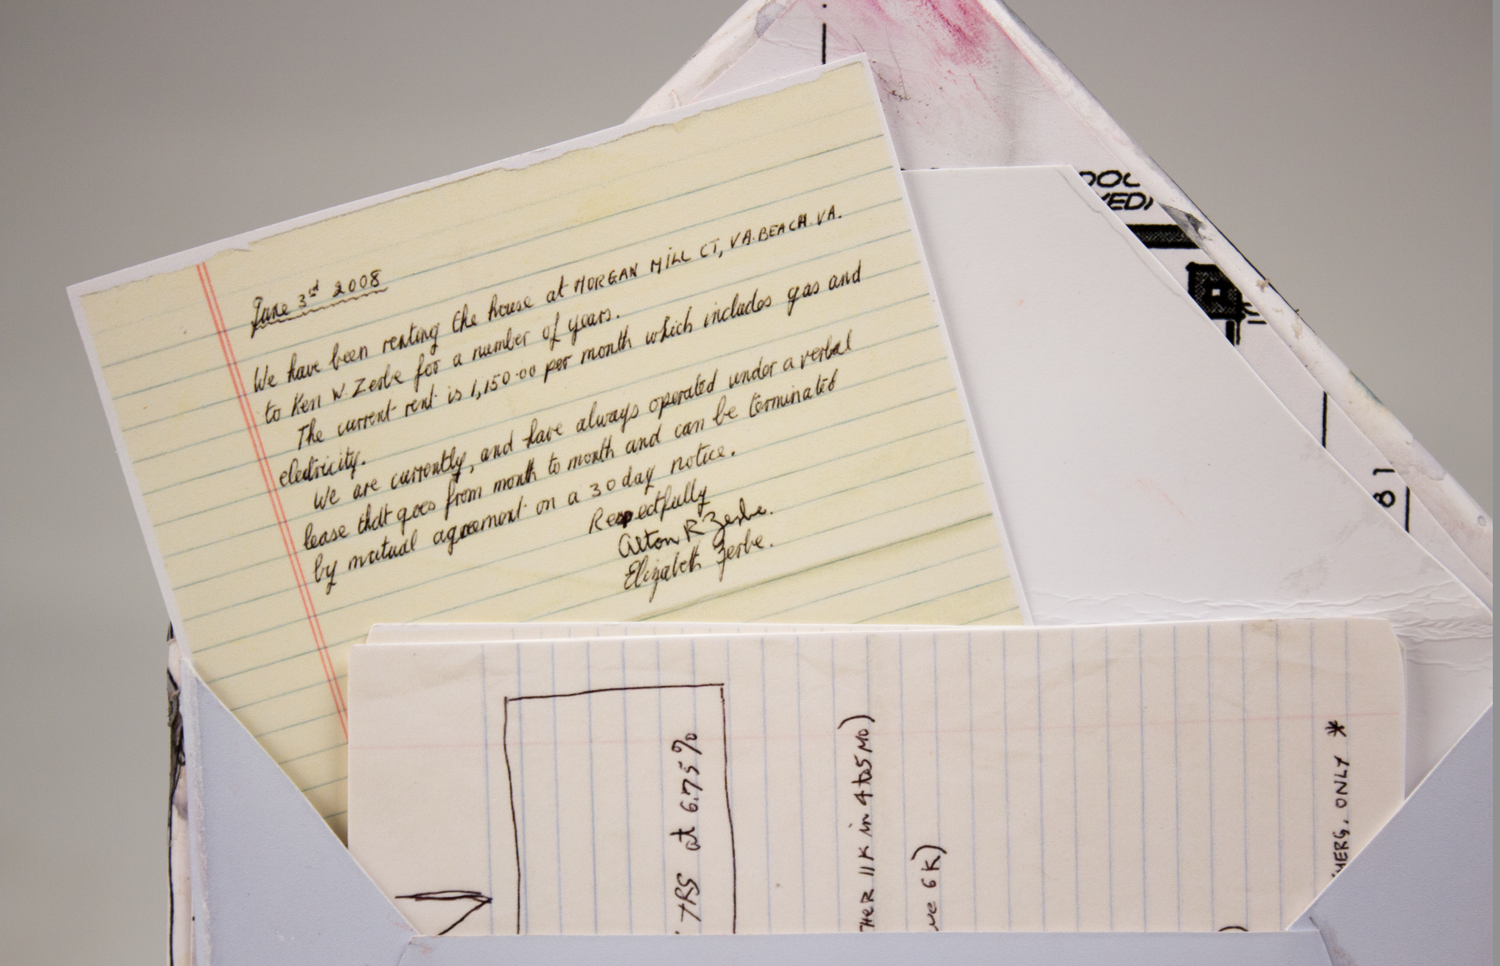 June 3rd 2008
We have been renting the house at MORGAN MILL CT, VA. BEACH. VA.
to Ken W Zerbe for a number of years.
The current rent is 1,150.00 per month which includes gas and
electricity.
We are currently, and have always operated under a verbal
lease that goes from month to month and can be terminated
by mutual agreement on a 30 day notice.
Respectfully
Alton R Zerbe.
Elizabeth Zerbe.
YRS at 6.75%
11K in 4 to 5 MO)
6K)
ONLY *
81